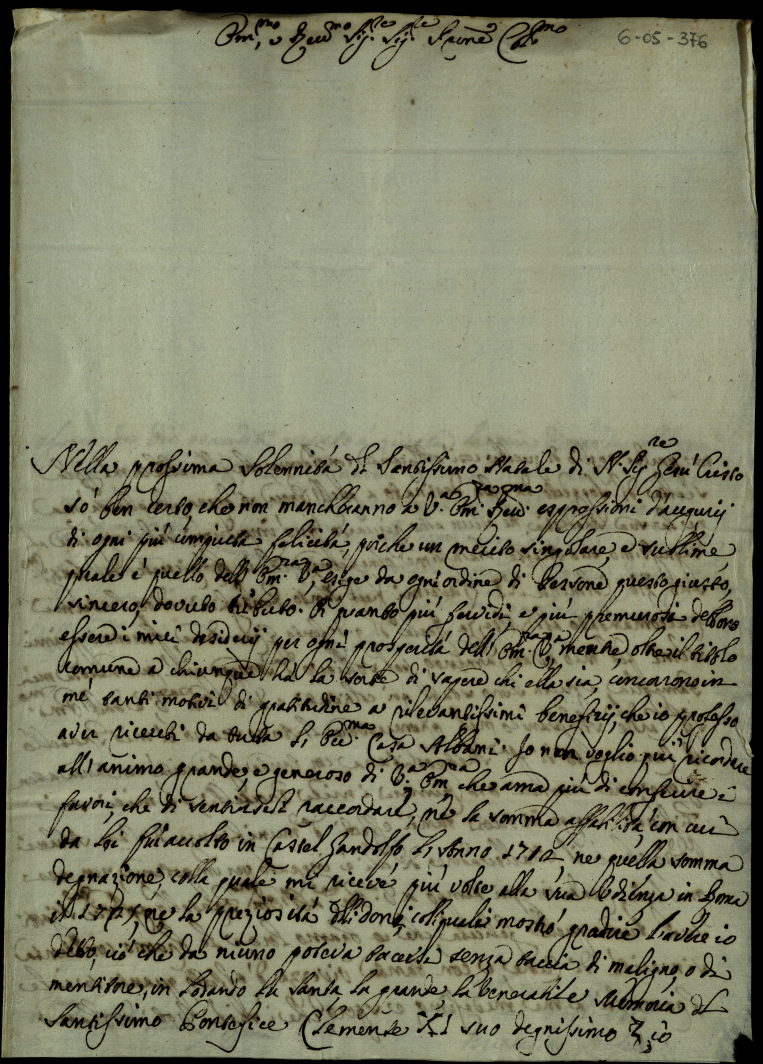 Em.mo, e Rev.mo Sig.re Sig.re Padrone Col.mo
6-05-376
Nella prossima Solennità del Santissimo Natale di N. Sig.re Gesù Cristo
sò ben certo, che non mancheranno a V.a Em.za Rev.ma espressioni d'augurij
di ogni più compiuta felicità, poiche un merito singolare, e sublime
quale è quello dell' Em.za V.a, esige da ogni ordine di Persone questo giusto,
sincero, dovuto tributo. Di quanto più fervidi, e più premurosi debbono
essere i miei desiderij per ogni prosperità dell' Em.za V.a, mentre, oltre il titolo
comune a chiunque hà la sorte di sapere chi ella sia, concorrono in
mè tanti motivi di gratitudine a rilevantissimi beneficij, che io professo
aver ricevuti da tutta l' Ecc.ma Casa Albani. Io non voglio più ricordare
all' animo grande, e generoso di V.a Em.za che ama più di conferire i
favori, che di sentirseli raccordare, nè la somma affabilità con cui
da Lei fui accolto in Castel Gandolfo l'anno 1712 ne quella somma
degnazione, colla quale mi ricevè più volte alla sua Udienza in Roma
il 1727, nè la preziosità delli doni, colli quali mostrò gradire l'aver io
detto, ciò che da niuno poteva tacersi senza taccia di maligno, o di
mentitore, in lodando la santa la grande la venerabile Memoria del
Santissimo Pontefice Clemente XI suo degnissimo Zio